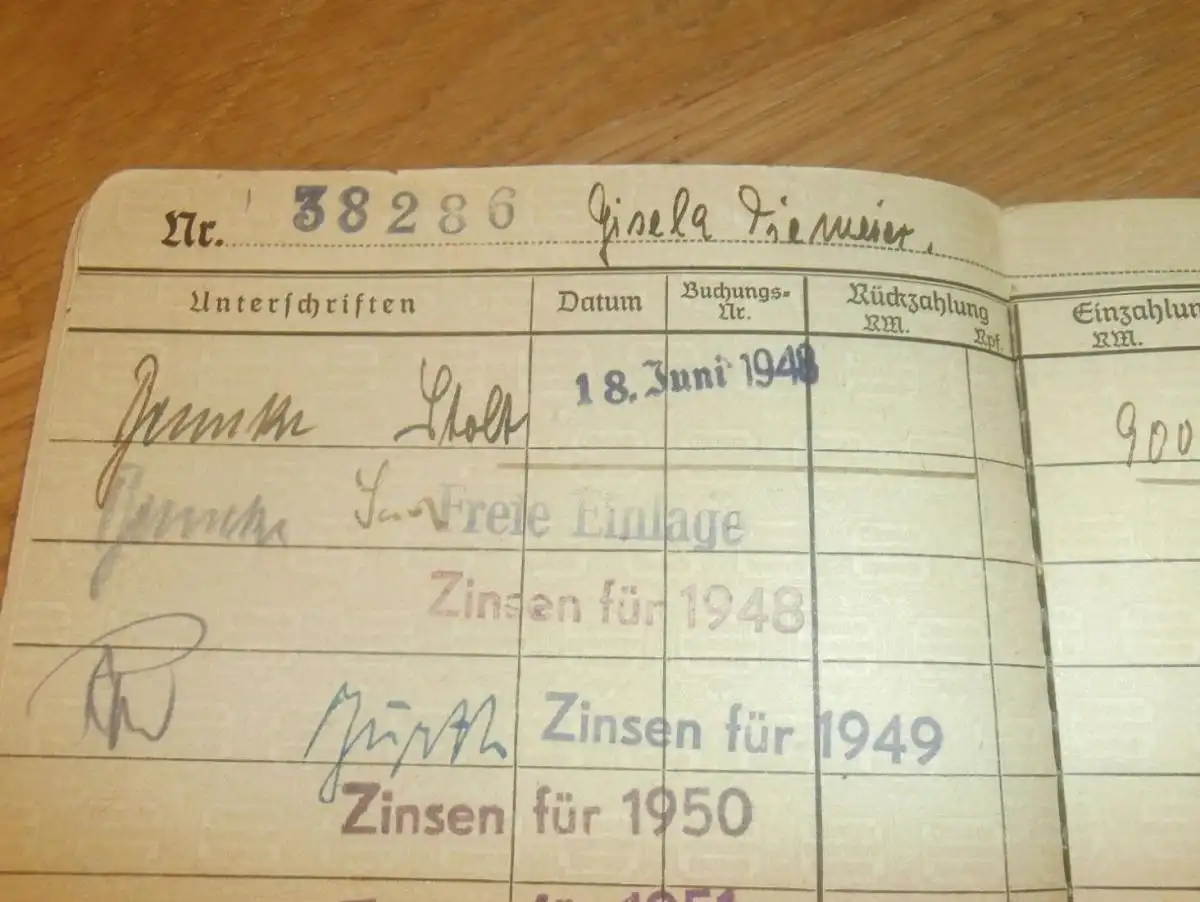 Nr. 38286 Gisela Diemeier.
Unterschriften Datum Buchungs-Nr. Rückzahlung RM. Rpf. Einzahlun RM.
Stolt 18. Juni 1948 900
Freie Einlage
Zinsen für 1948
Zinsen für 1949
Zinsen für 1950
für 1951